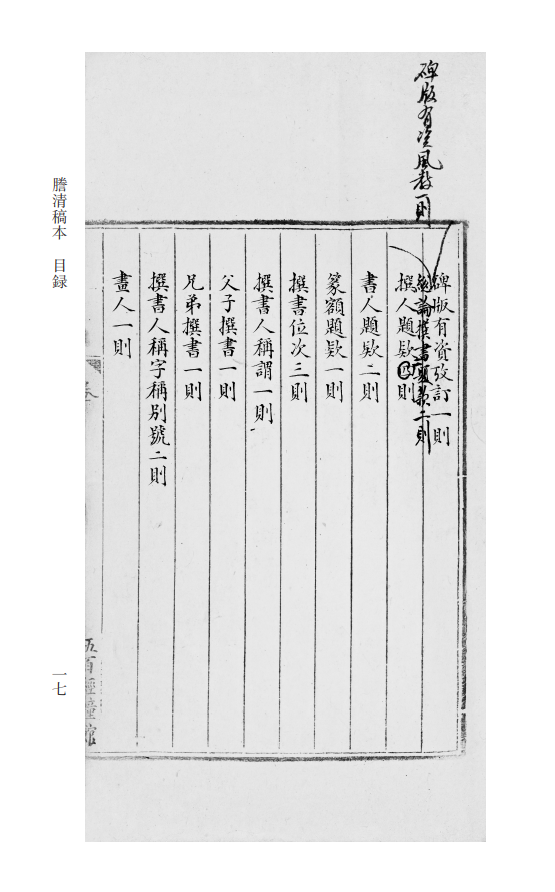 碑版有資風教一則
碑版有資攷訂一則
總論撰書題欵二則
撰人題欵四則
書人題欵二則
篆額題欵一則
撰書位次三則
撰書人稱謂一則
父子撰書一則
兄弟撰書一則
撰書人稱字稱別號二則
畫人一則
卷
五百經幢館
謄清稿本 目録
一七